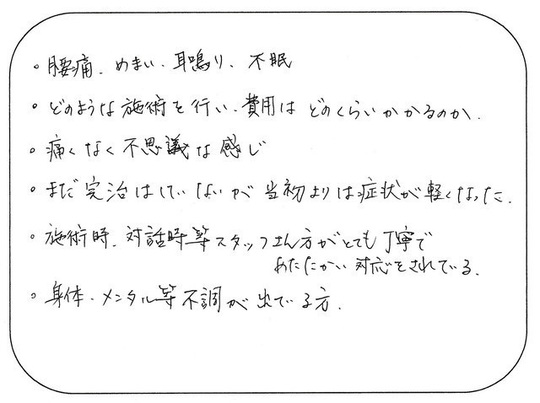 。腰痛、めまい、耳鳴り、不眠
。どのような施術を行い、費用はどのくらいかかるのか.
。痛くなく不思議な感じ
。まだ完治はしていないが当初よりは症状が軽くなった.
。施術時、対話時等スタッフさん方がとても丁寧で
あたたかい対応をされている.
。身体・メンタル等不調が出ている方.